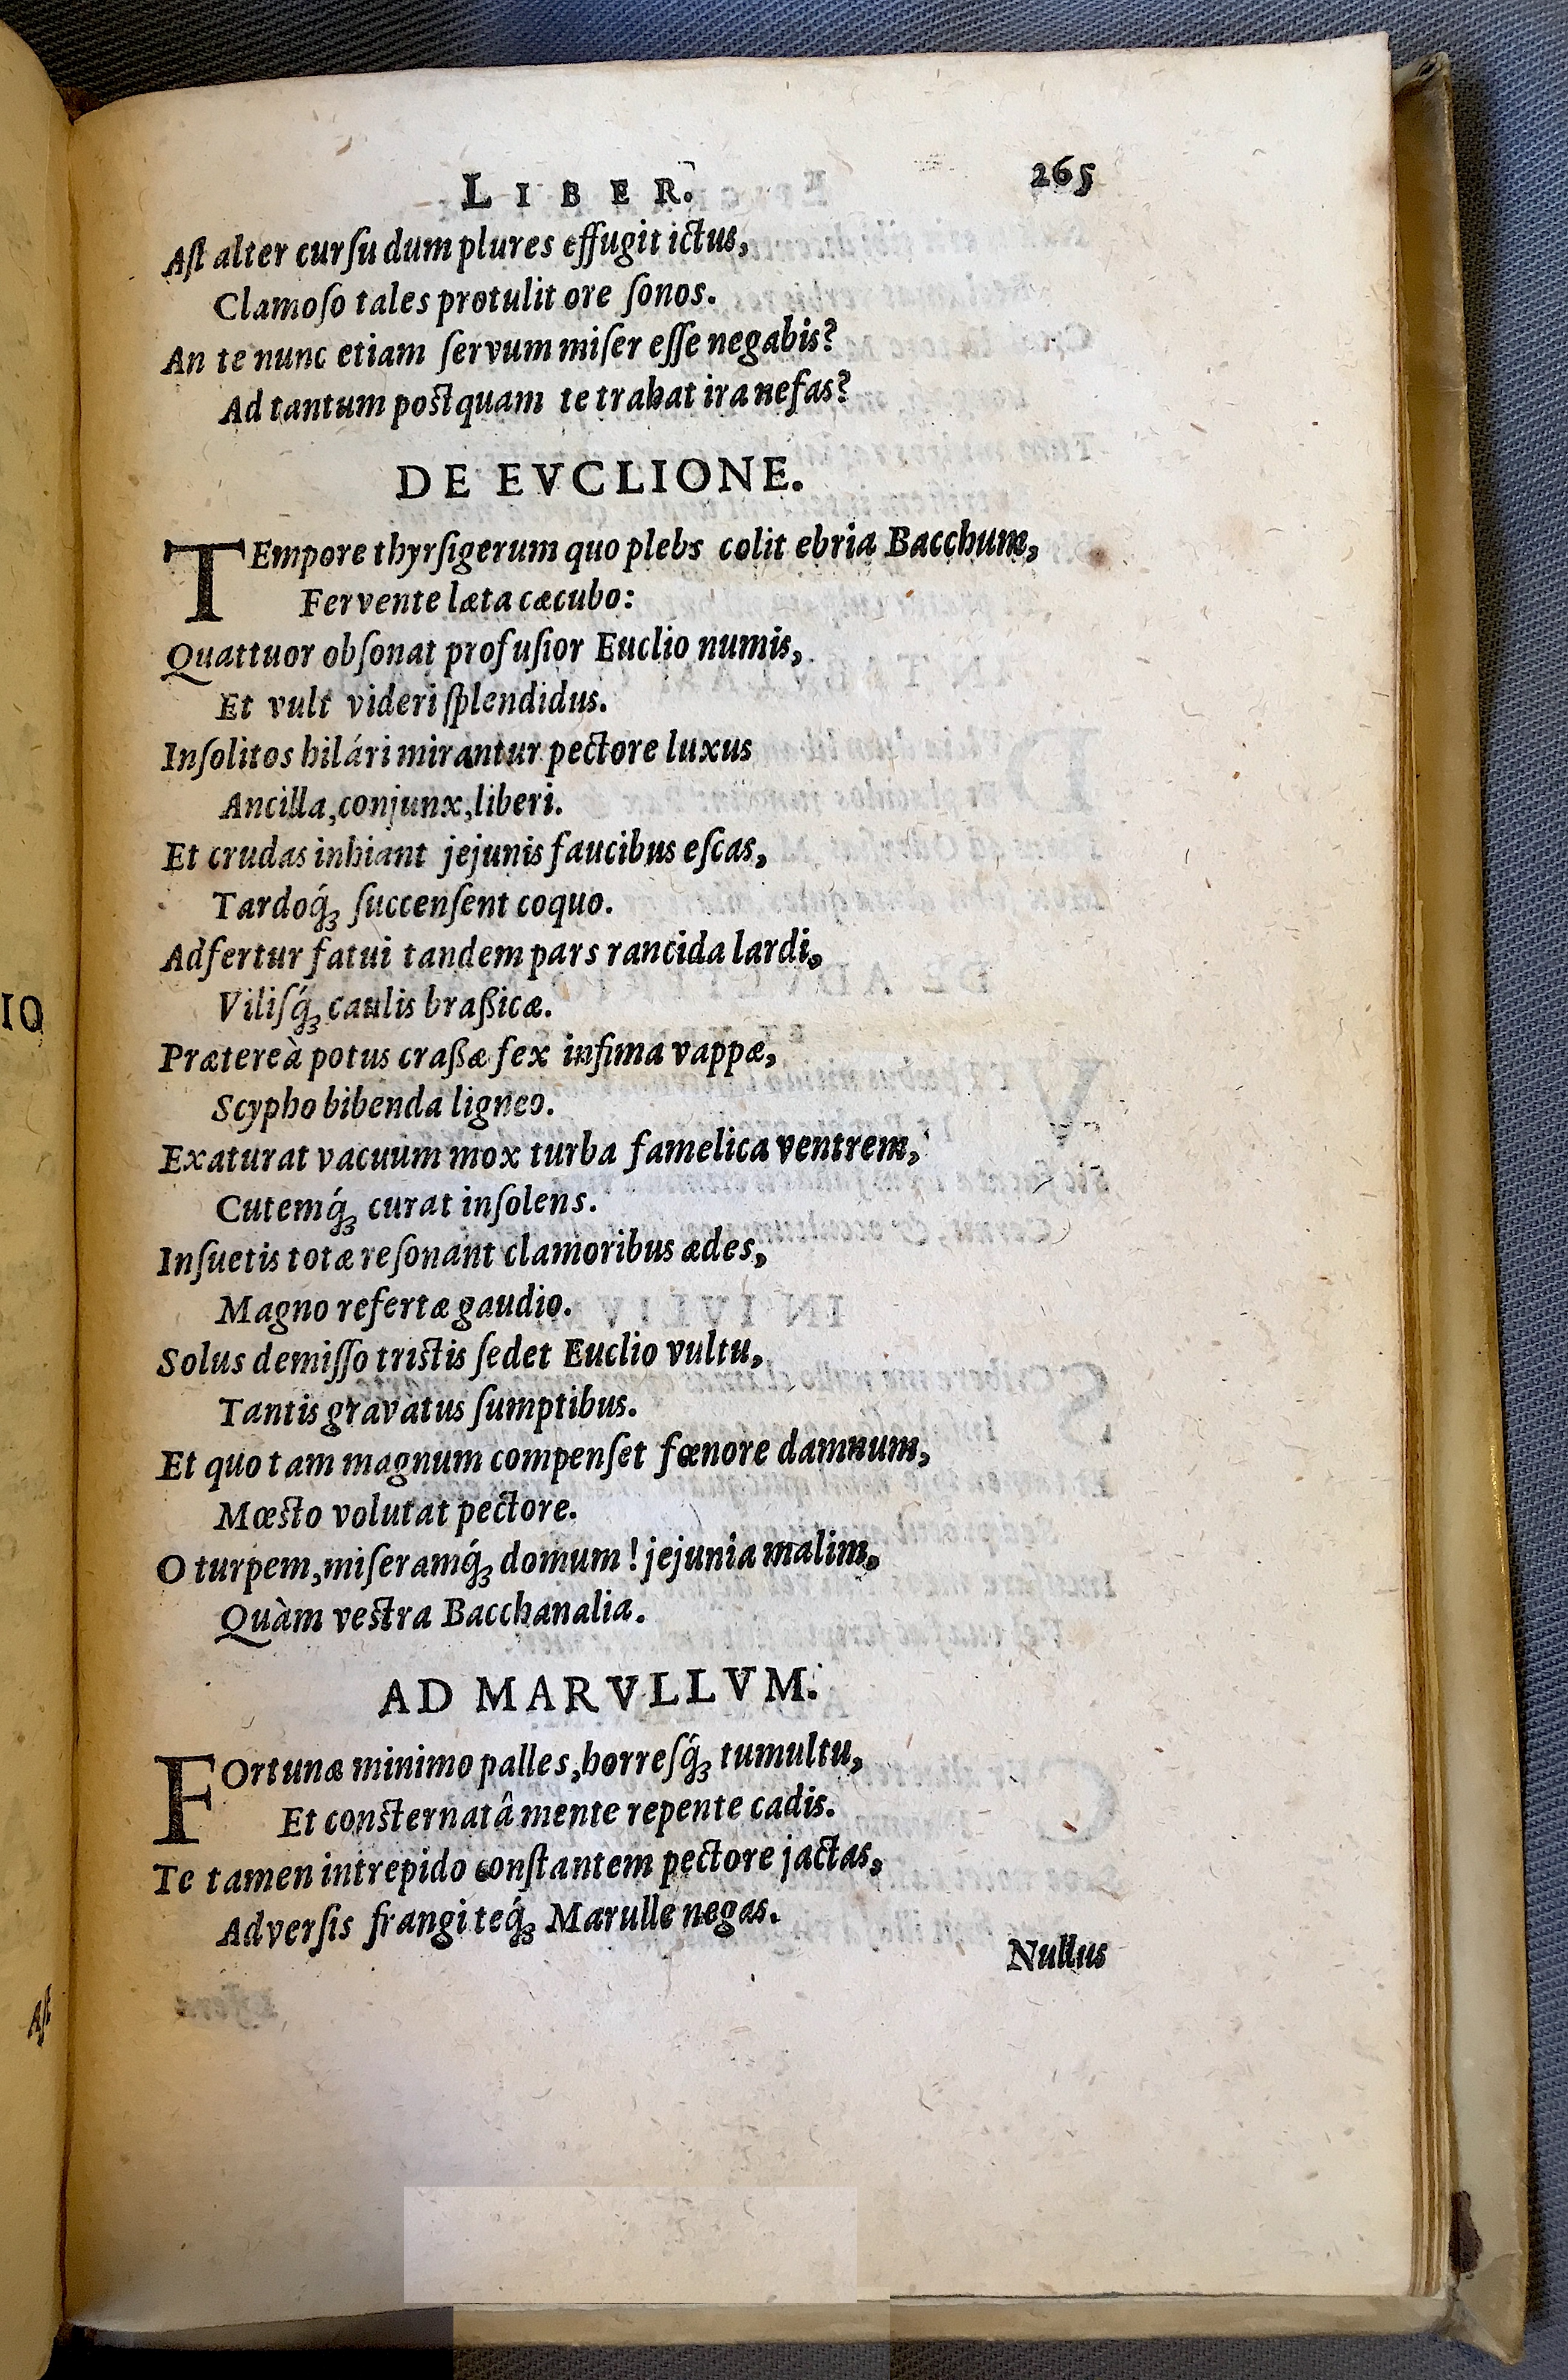 LIBER. 265
Aſt alter curſu dum plures effugit ictus,
Clamoſo tales protulit ore ſonos.
An te nunc etiam ſervum miſer eſſe negabis?
Ad tantum poſtquam te trahat ira nefas?
DE EVCLIONE.
TEmpore thyrſigerum quo plebs colit ebria Bacchum,
Fervente læta cæcubo:
Quattuor obſonat profuſior Euclio numis,
Et vult videri ſplendidus.
Inſolitos hilári mirantur pectore luxus
Ancilla, conjunx, liberi.
Et crudas inhiant jejunis faucibus eſcas,
Tardoq́ꝫ ſuccenſent coquo.
Adfertur fatui tandem pars rancida lardi,
Viliſq́ꝫ caulis braßicæ.
Prætereà potus craßæ fex infima vappæ,
Scypho bibenda ligneo.
Exaturat vacuum mox turba famelica ventrem,
Cutemq́ꝫ curat inſolens.
Inſuetis totæ reſonant clamoribus ædes,
Magno refertæ gaudio.
Solus demiſſo triſtis ſedet Euclio vultu,
Tantis gravatus ſumptibus.
Et quo tam magnum compenſet fœnore damnum,
Mœſto volutat pectore.
O turpem, miſeramq́ꝫ domum! jejunia malim,
Quàm veſtra Bacchanalia.
AD MARVLLVM.
FOrtunæ minimo palles, horreſq́ꝫ tumultu,
Et conſternatâ mente repente cadis.
Te tamen intrepido conſtantem pectore jactas,
Adverſis frangi teq́ꝫ Marulle negas.
Nullus
IO
Aſt